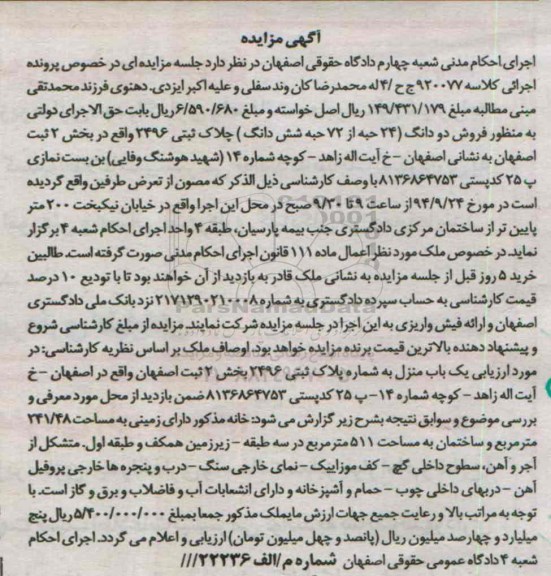 آگهی مزایده
اجرای احکام مدنی شعبه چهارم دادگاه حقوقی اصفهان در نظر دارد جلسه مزایده ای در خصوص پرونده
اجرائی کلاسه ۹۲۰۰۷۷ ج ح /۴ له محمدرضا کان وند سفلی و علیه اکبر ایزدی.دهنوی فرزند محمدتقی
مبنی مطالبه مبلغ ۱۴۹/۴۳۱/۱۷۹ ریال اصل خواسته و مبلغ ۶/۵۹۰/۶۸۰ ریال بابت حق الاجرای دولتی
به منظور فروش دو دانگ (۲۴ حبه از ۷۲ حبه شش دانگ ) چلاک ثبتی ۲۴۹۶ واقع در بخش ۲ ثبت
اصفهان به نشانی اصفهان - خ آیت اله زاهد - کوچه شماره ۱۴ (شهید هوشنگ وفایی) بن بست نمازی
پ ۲۵ کدپستی ۸۱۳۶۸۶۴۷۵۳ با وصف کارشناسی ذیل الذکر که مصون از تعرض طرفین واقع گردیده
است در مورخ ۹۴/۹/۲۴ از ساعت ۹ تا ۹/۳۰ صبح در محل این اجرا واقع در خیابان نیکبخت ۲۰۰ متر
پایین تر از ساختمان مرکزی دادگستری جنب بیمه پارسیان، طبقه ۴ واحد اجرای احکام شعبه ۴ برگزار
نماید. در خصوص ملک مورد نظر اعمال ماده ۱۱۱ قانون اجرای احکام مدنی صورت گرفته است. طالبین
خرید ۵ روز قبل از جلسه مزایده به نشانی ملک قادر به بازدید از آن خواهند بود تا با تودیع ۱۰ درصد
قیمت کارشناسی به حساب سپرده دادگستری به شماره ۲۱۷۱۲۹۰۲۱۰۰۰۸ نزد بانک ملی دادگستری
اصفهان و ارائه فیش واریزی به این اجرا در جلسه مزایده شرکت نمایند. مزایده از مبلغ کارشناسی شروع
و پیشنهاد دهنده بالاترین قیمت برنده مزایده خواهد بود. اوصاف ملک بر اساس نظریه کارشناسی: در
مورد ارزیابی یک باب منزل به شماره پلاک ثبتی ۲۴۹۶ بخش ۲ ثبت اصفهان واقع در اصفهان - خ
آیت اله زاهد - کوچه شماره ۱۴- پ ۲۵ کدپستی ۸۱۳۶۸۶۴۷۵۳ ضمن بازدید از محل مورد معرفی و
بررسی موضوع و سوابق نتیجه بشرح زیر گزارش می شود: خانه مذکور دارای زمینی به مساحت ۲۴۱/۴۸
متر مربع و ساختمان به مساحت ۵۱۱ متر مربع در سه طبقه - زیرزمین همکف و طبقه اول. متشکل از
آجر و آهن، سطوح داخلی گچ - کف موزاییک - نمای خارجی سنگ - درب و پنجره ها خارجی پروفیل
آهن - دربهای داخلی چوب - حمام و آشپزخانه و دارای انشعابات آب و فاضلاب و برق و گاز است. با
توجه به مراتب بالا و رعایت جمیع جهات ارزش مایملک مذکور جمعا بمبلغ ۵/۴۰۰/۰۰۰/۰۰۰ ریال پنج
میلیارد و چهارصد میلیون ریال (پانصد و چهل میلیون تومان) ارزیابی و اعلام می گردد. اجرای احکام
شعبه ۴ دادگاه عمومی حقوقی اصفهان شماره م/الف ۲۲۲۳۶///
ParsNamadData